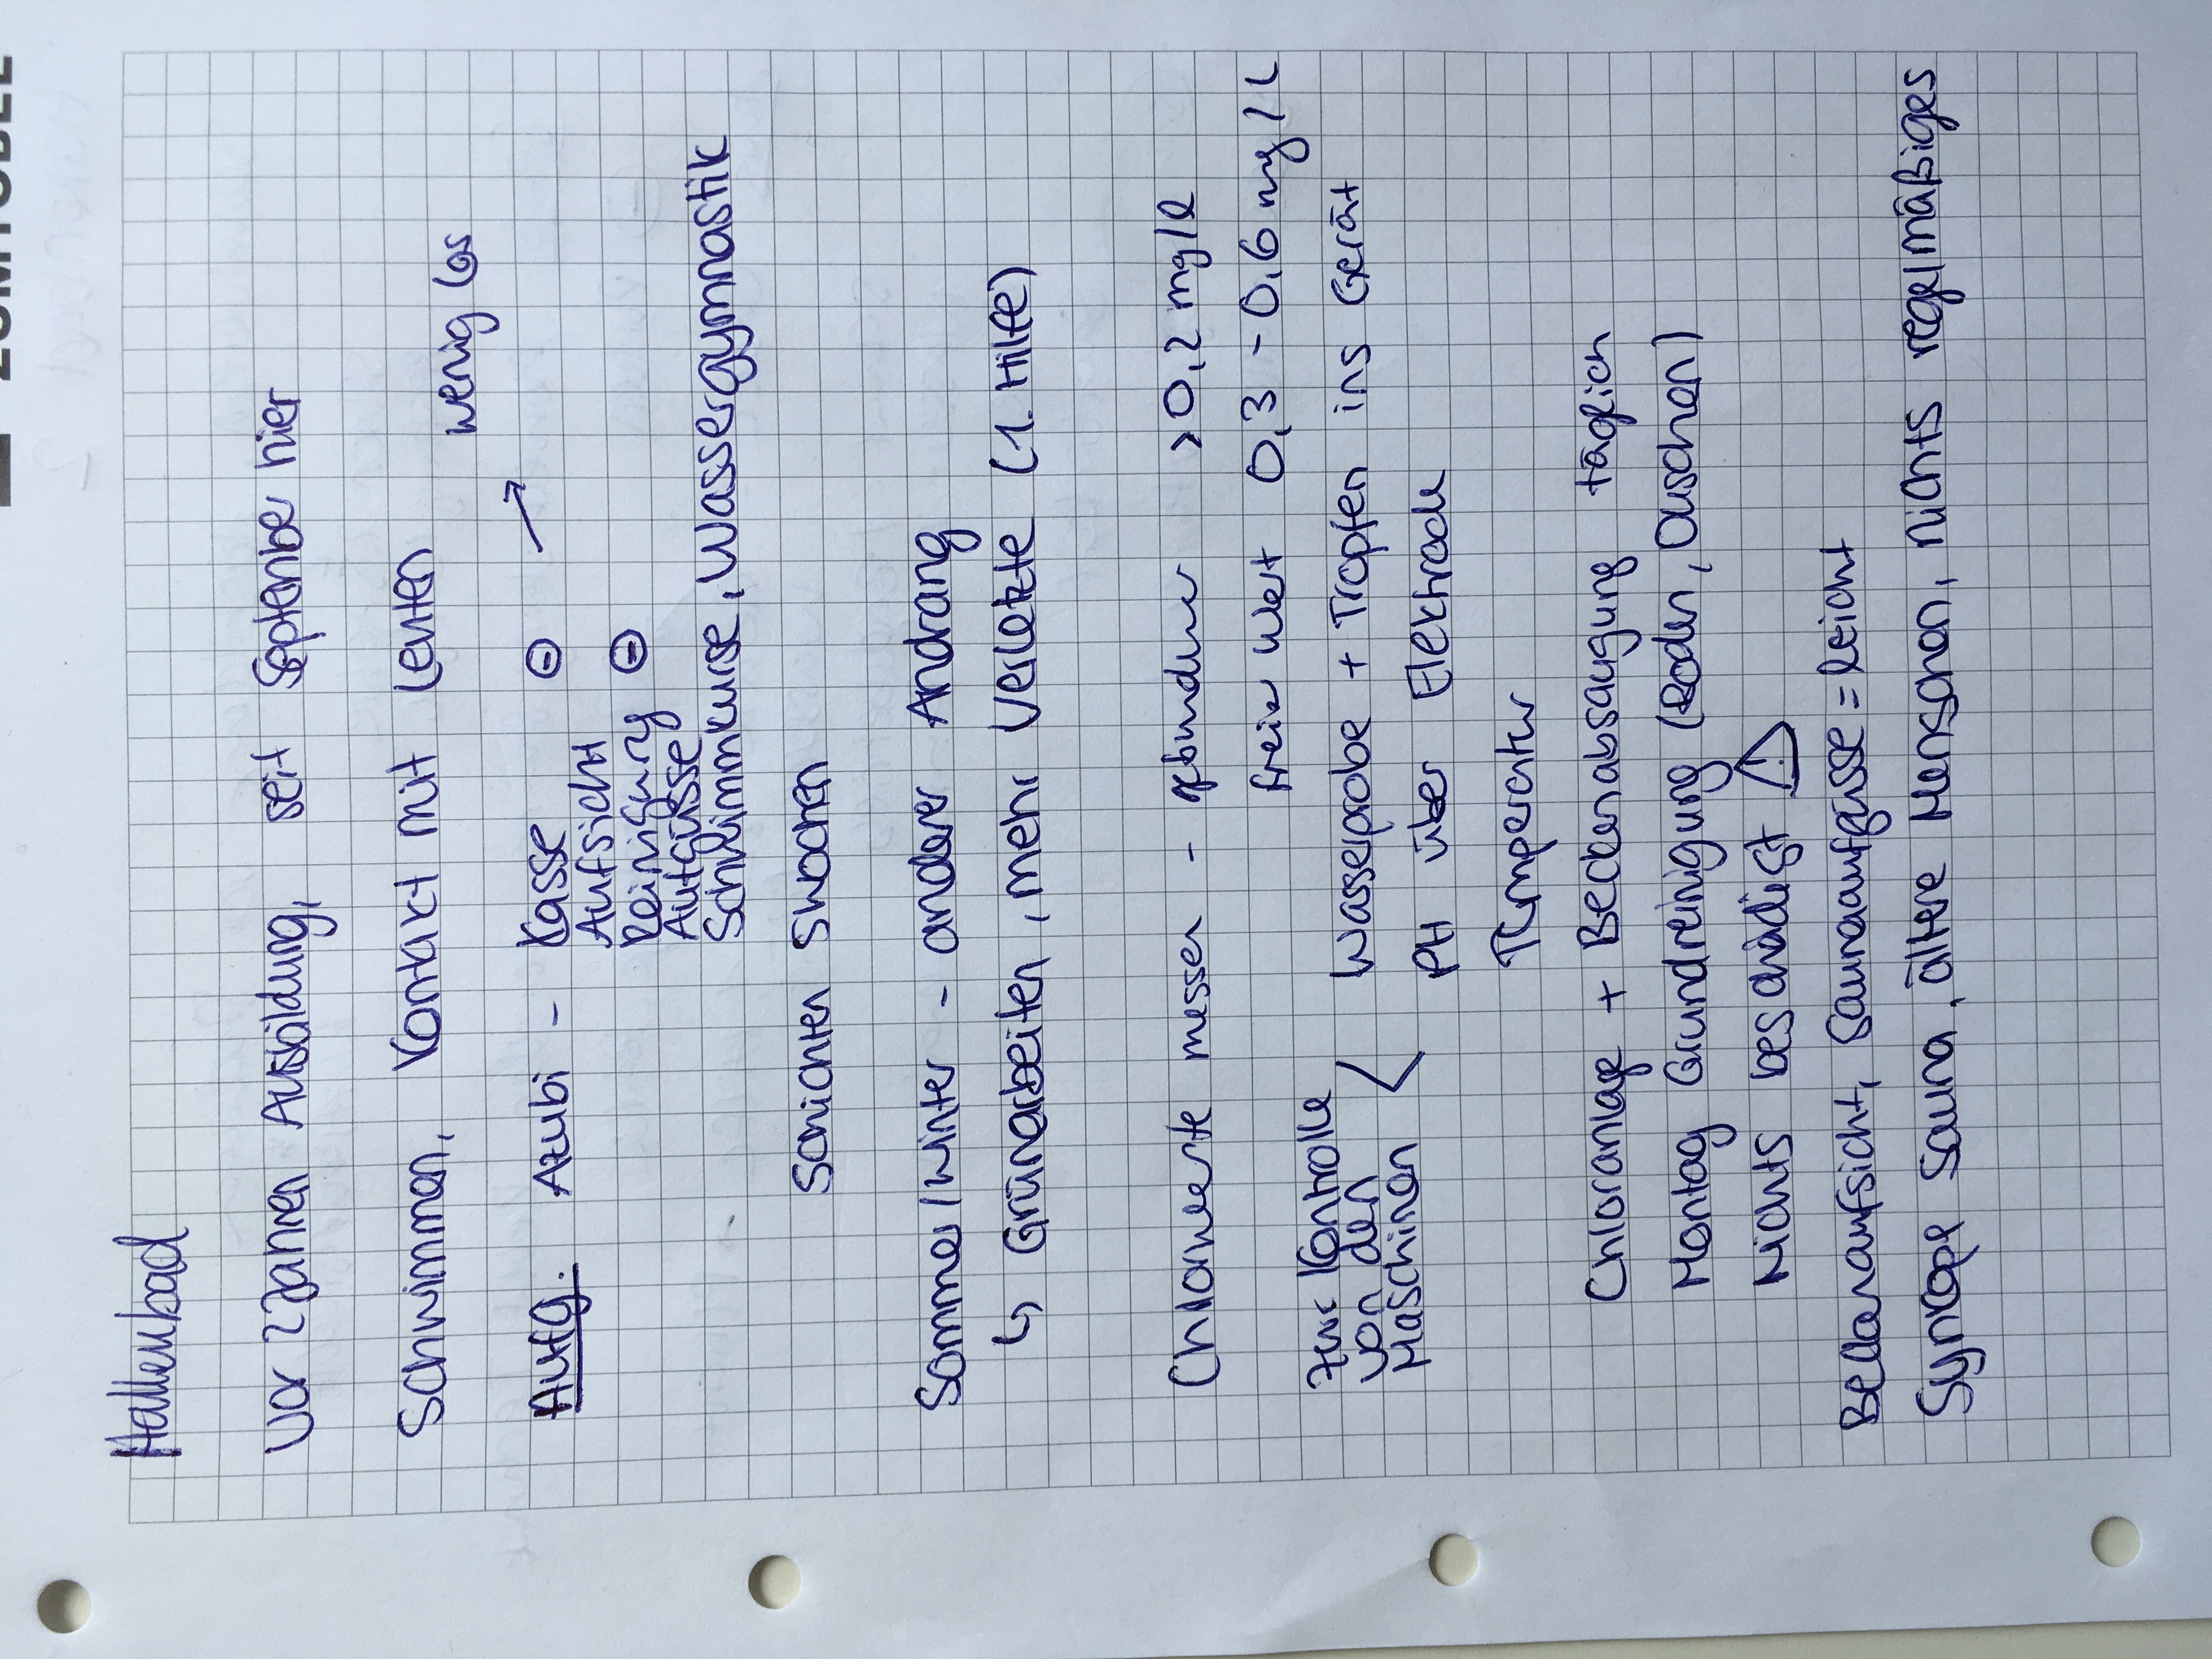 ZUMTOBEL
Hallenbad
Vor 2 Jahren Ausbildung, seit September hier
Schwimmen, Kontakt mit Leuten
wenig los
Aufg. Azubi - Kasse ⊖ →
Aufsicht
Reinigung ⊖
Aufgüsse
Schwimmkurse, Wassergymnastik
Schichten 5 Wochen
Sommer/Winter - anderer Andrang
↳ Grünarbeiten, mehr Verletzte (1. Hilfe)
Chlorwerte messen - gebundener > 0,2 mg/l
freier Wert 0,3 - 0,6 mg/L
Zur Kontrolle
von den
Maschinen <
Wasserprobe + Tropfen ins Gerät
PH über Elektrode
Temperatur
Chloranlage + Beckenabsaugung täglich
Montag Grundreinigung (Boden, Duschen)
Nichts beschädigt ⚠
Beckenaufsicht, Saunaaufgüsse = leicht
Synkope Sauna, ältere Menschen, nichts regelmäßiges